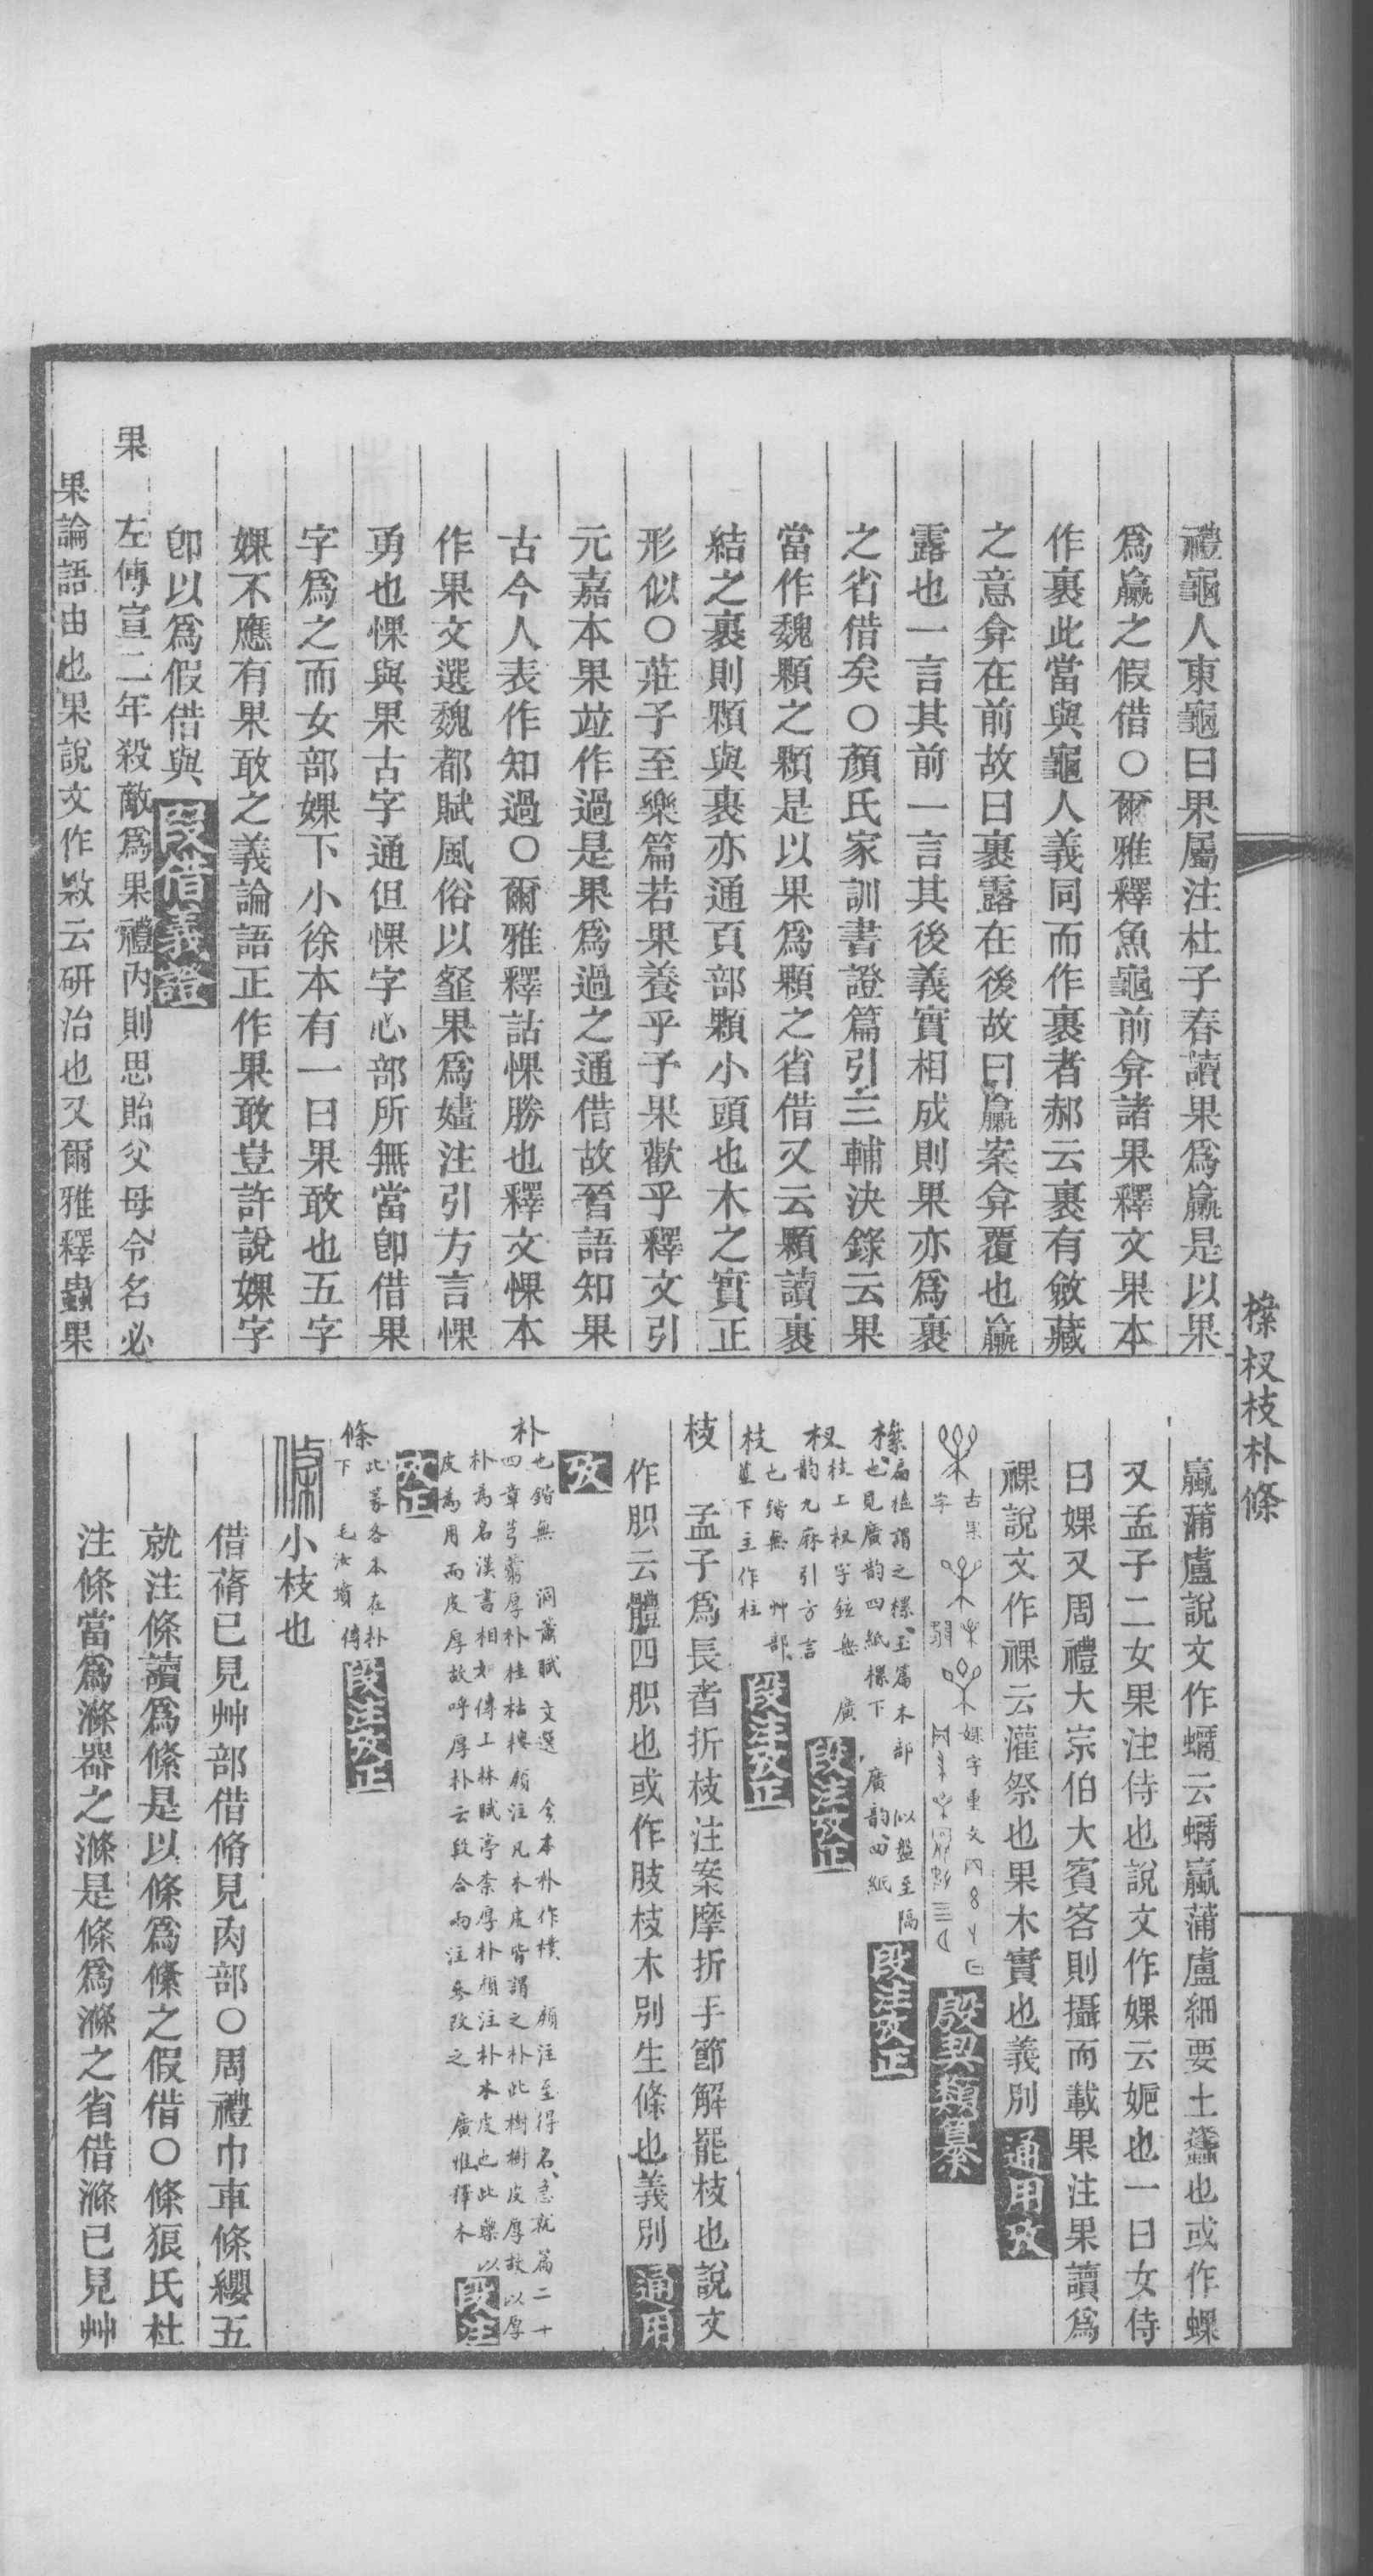 禮龜人東龜曰果屬注杜子春讀果爲蠃是以果
爲蠃之假借○爾雅釋魚龜前弇諸果釋文果本
作裹此當與龜人義同而作裹者郝云裹有斂藏
之意弇在前故曰裹露在後故曰蠃案弇覆也蠃
露也一言其前一言其後義實相成則果亦爲裹
之省借矣○顏氏家訓書證篇引三輔決錄云果
當作魏顆之顆是以果爲顆之省借又云顆讀裹
結之裹則顆與裹亦通頁部顆小頭也木之實正
形似○莊子至樂篇若果養乎予果歡乎釋文引
元嘉本果竝作過是果爲過之通借故晉語知果
古今人表作知過○爾雅釋詁惈勝也釋文惈本
作果文選魏都賦風俗以韰果爲嫿注引方言惈
勇也惈與果古字通但惈字心部所無當卽借果
字爲之而女部婐下小徐本有一曰果敢也五字
婐不應有果敢之義論語正作果敢豈許說婐字
卽以爲假借與 叚借義證
果 左傳宣二年殺敵爲果禮內則思貽父母令名必
果論語由也果說文作敤云研治也又爾雅釋蟲果
橠杈枝朴條
蠃蒲盧說文作蠣云蠣蠃蒲盧細要土蠭也或作蜾
又孟子二女果注侍也說文作婐云妮也一曰女侍
曰婐又周禮大宗伯大賓客則攝而載果注果讀爲
祼說文作祼云灌祭也果木實也義別 通用攷
古果字 婐字重文 殷契類纂
扁榼謂之椑玉篇木部 似盤至隔 段注攷正
也見廣韵四紙 下 廣韵四紙
杈 枝上杈字鉉無 廣韵九麻引方言 段注攷正
枝 也鍇無 艸部莖下主作柱 段注攷正
枝 孟子爲長者折枝注案摩折手節解罷枝也說文
作胑云體四胑也或作肢枝木別生條也義別 通用
攷
朴 也鍇無 洞簫賦 文選 今本朴作樸 顏注至得名急就篇二十
四章芎藭厚朴桂栝樓顏注凡木皮皆謂之朴此樹樹皮厚故以厚
朴為名漢書相如傳上林賦亭柰厚朴顏注朴木皮也此藥以
皮為用而皮厚故呼厚朴云段合兩注參改之 廣雅釋木 段注
攷正
條 此篆各本在朴下 毛汝墳傳 段注攷正
小枝也
借蓨已見艸部借脩見肉部○周禮巾車條纓五
就注條讀爲絛是以條爲絛之假借○條狼氏杜
注條當爲滌器之滌是條爲滌之省借滌已見艸